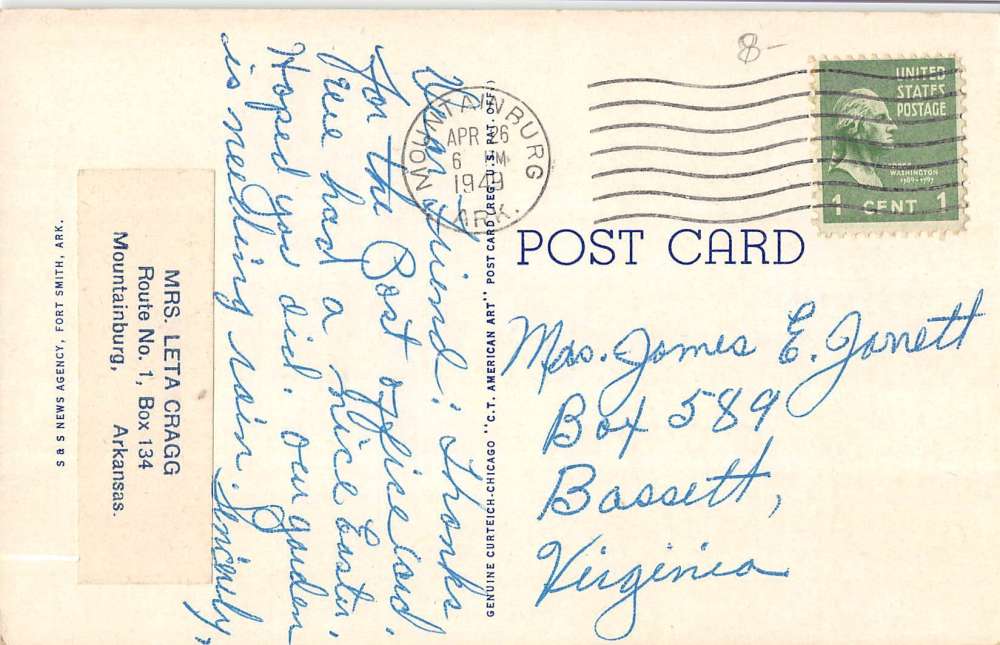 8-
UNITED
STATES
POSTAGE
WASHINGTON
1789-1797
1 CENT 1
MOUNTAINBURG
APR 26
6 M
1949
ARK.
POST CARD
Mrs. James E. Jarrett
Box 589
Bassett,
Virginia
Dear Friend: Thanks
for the Post office card.
We had a nice Easter.
Hoped you did. Our garden
is needing rain. Sincerely,
GENUINE CURTEICH-CHICAGO "C.T. AMERICAN ART" POST CARD (REG. U.S. PAT. OFF.)
MRS. LETA CRAGG
Route No. 1, Box 134
Mountainburg, Arkansas.
S & S NEWS AGENCY, FORT SMITH, ARK.